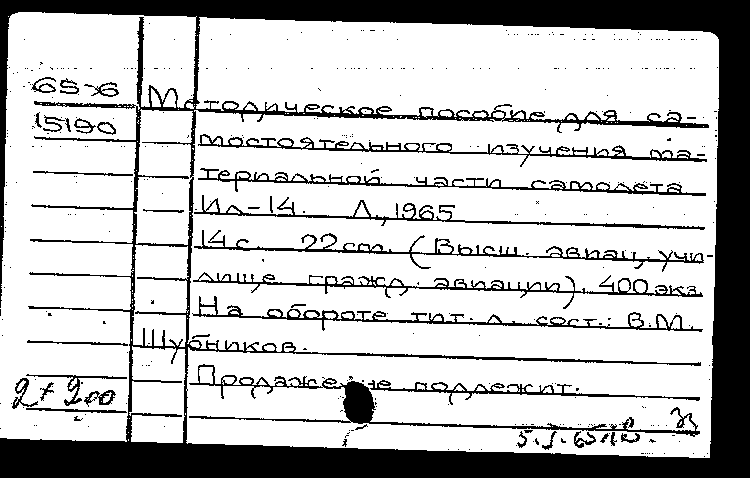 65-6
15190
Методическое пособие для са-
мостоятельного изучения ма-
териальной части самолета
Ил-14. Л., 1965
14 с. 22 см. (Высш. авиац. учи-
лище гражд. авиации). 400 экз.
На обороте тит. л. сост.: В.М.
Шубников.
Продаже не подлежит.
2 +